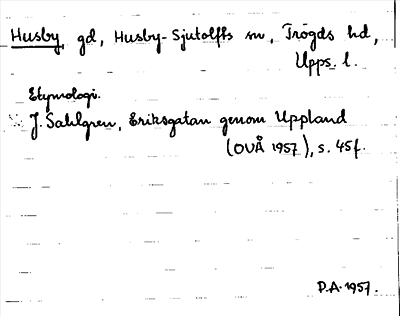 Husby, gd, Husby-Sjutolffs sn, Trögds hd,
Upps. l.
Etymologi.
J. Sahlgren, Eriksgatan genom Uppland
(OUÅ 1957), s. 45f.
P.A. 1957.